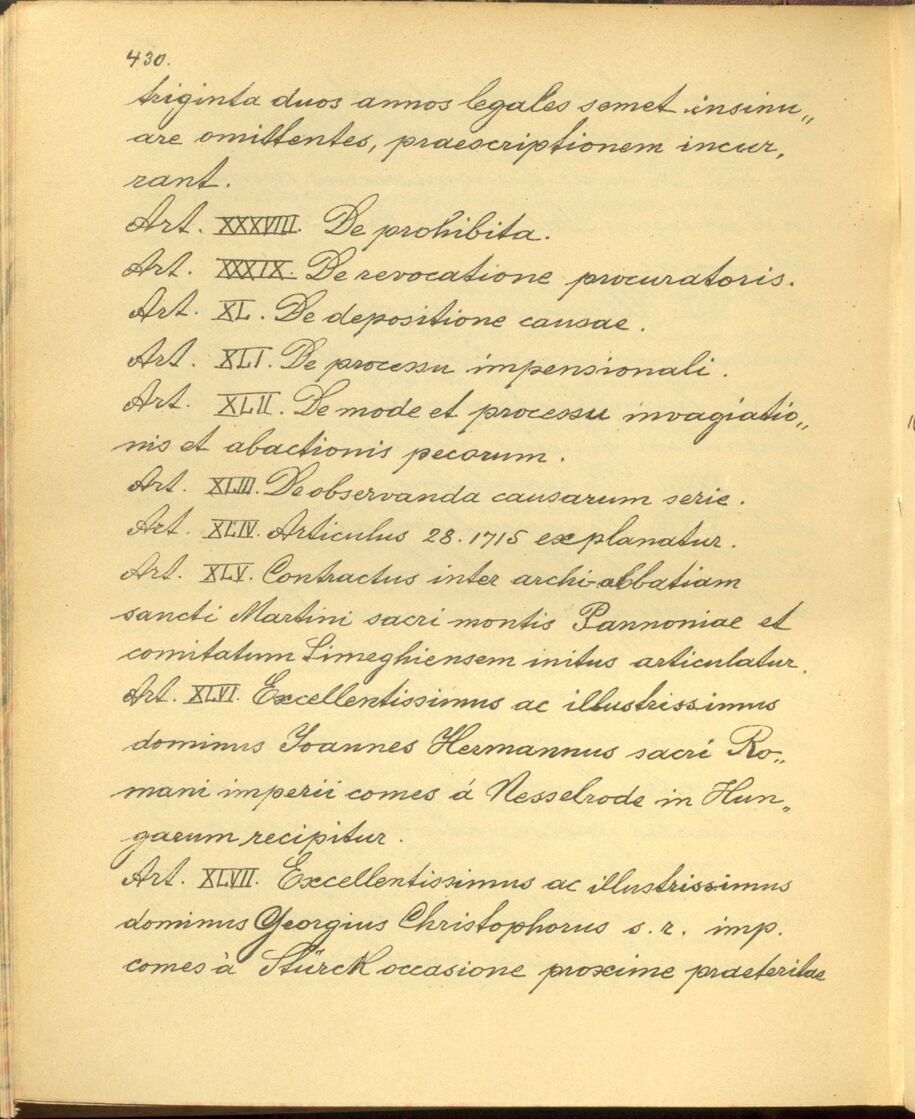 430.
triginta duos annos legales semet insinu„
are omittentes, praescriptionem incur,
rant.
Art. XXXVIII. De prohibita.
Art. XXXIX. De revocatione procuratoris.
Art. XL. De depositione causae.
Art. XLI. De processu impensionali.
Art. XLII. De mode et processu invagiatio„
nis et abactionis pecorum.
Art. XLIII. De observanda causarum serie.
Art. XLIV. Articulus 28. 1715 explanatur.
Art. XLV. Contractus inter archi-abbatiam
sancti Martini sacri montis Pannoniae et
comitatum Simeghiensem initus articulatur.
Art. XLVI. Excellentissimus ac illustrissimus
dominus Joannes Hermannus sacri Ro„
mani imperii comes á Nesselrode in Hun„
garum recipitur.
Art. XLVII. Excellentissimus ac illustrissimus
dominus Georgius Christophorus s. r. imp.
comes à Stürck occasione proxime praeteritae